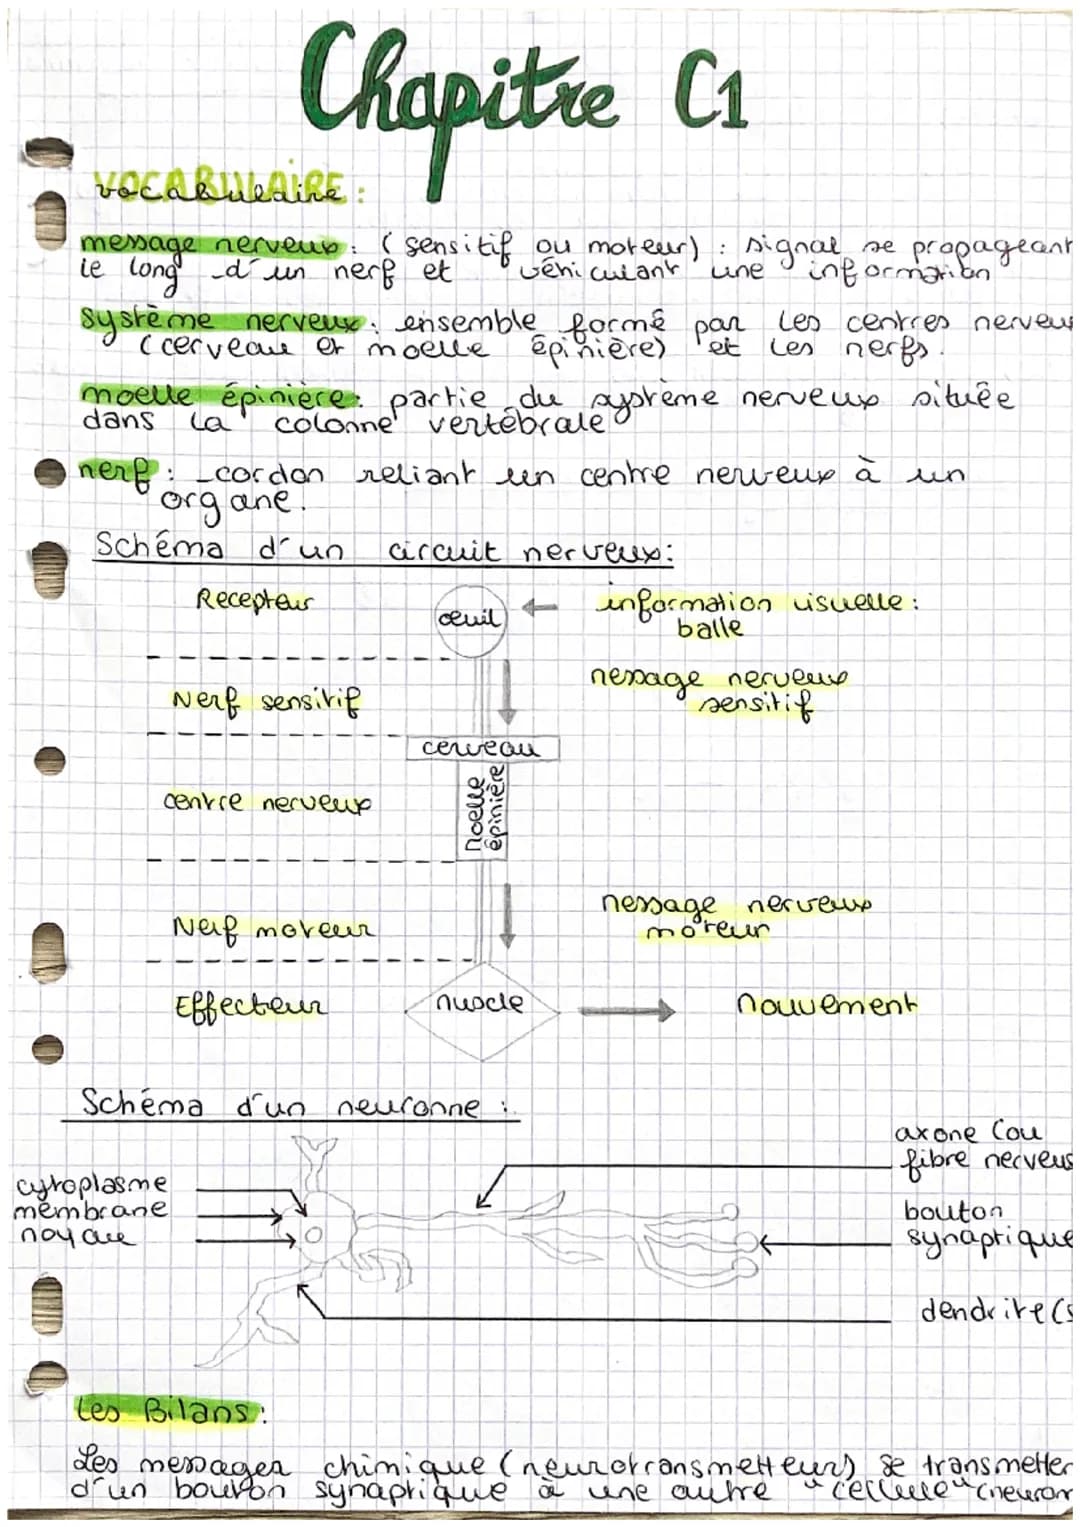 Chapitre C1
vocabulaire :
message nerveux : (sensitif ou moteur) : signal se propageant
le long d'un nerf et véhiculant une information
système nerveux : ensemble formé par les centres nerveux
(cerveau et moelle épinière) et les nerfs.
moelle épinière : partie du système nerveux située
dans la colonne vertébrale
nerf : cordon reliant un centre nerveux à un
organe.
Schéma d'un circuit nerveux :
Recepteur
œuil
information visuelle :
balle
Nerf sensitif
message nerveux
sensitif
cerveau
centre nerveux
Moelle
épinière
Nerf moteur
message nerveux
moteur
Effecteur
muscle
Mouvement
Schéma d'un neuronne :
axone (ou
fibre nerveus
cytoplasme
membrane
noyau
bouton
synaptique
dendrite(s
Les Bilans :
Les messager chimique (neurotransmetteur) se transmetter
d'un bouton synaptique à une autre "cellule" (neuron